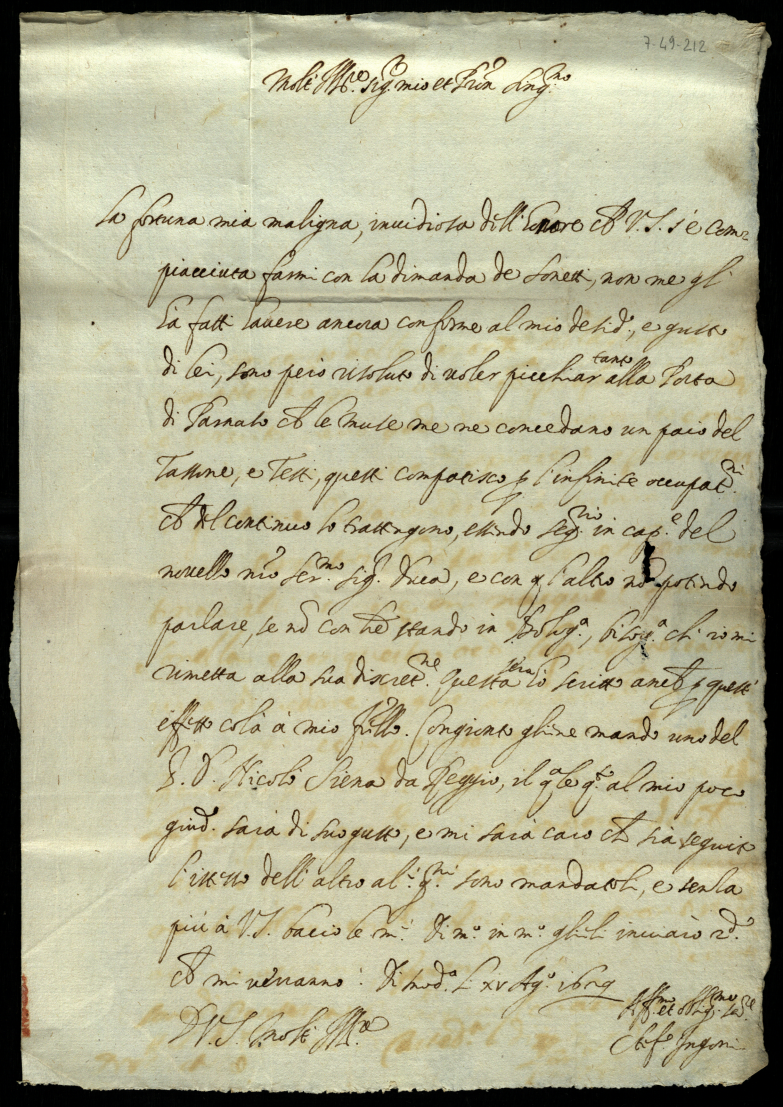 7-49-212
Molt' Ill.re Sig.r mio et P.ron Sing.mo
La fortuna mia maligna, invidiosa dell'honore ch V.S. s'è com=
piacciuta farmi con la dimanda de sonetti, non me gli
hà fatti havere ancora conforme al mio desid.o, e gusto
di lei, sono però risoluto di voler picchiar tanto alla Porta
di Parnaso ch le Muse me ne concedano un paio del
Tassone, e Testi, questi compatisco p l'infinite occupat.ni
ch del continuo lo trattengono, essendo seg.rio in cap.e del
novello nro Ser.mo Sig.r Duca, e con q l'altro nō potendo
parlare, se nō con stando in Bolog.a, bisog.a ch'io mi
rimetta alla sua discret.ne. Questa sera hò scritto anch p quest'
effetto colà à mio frllo. Congionto gline mando uno del
S. D. Nicolò Siena da Reggio, il q.le q.to al mio poco
giud.o sarà di suo gusto, e mi sarà caro ch sia seguito
l'istesso dell'altro al.i g.ni sono mandatoli, e senza
più à V.S. bacio le m.i Di m.o in m.o gli li inviarò 2.do
ch mi verranno. Di Mod.a li xv Ag.o 1629
D V.S. Molt' Ill.re
Aff.mo et Obblig.mo Ser.re